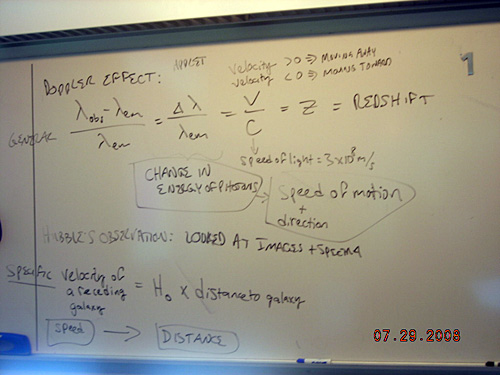 APPLET
velocity > 0 ⇒ MOVING AWAY
velocity < 0 ⇒ MOVING TOWARD
1
DOPPLER EFFECT:
GENERAL
λobs - λem / λem = Δλ / λem = V / C = Z = REDSHIFT
speed of light = 3×10⁸ m/s
CHANGE IN
ENERGY OF PHOTONS
Speed of motion
+
direction
HUBBLE'S OBSERVATION: LOOKED AT IMAGES + SPECTRA
SPECIFIC velocity of
a receding
galaxy = H₀ × distance to galaxy
Speed → DISTANCE
07.29.2008